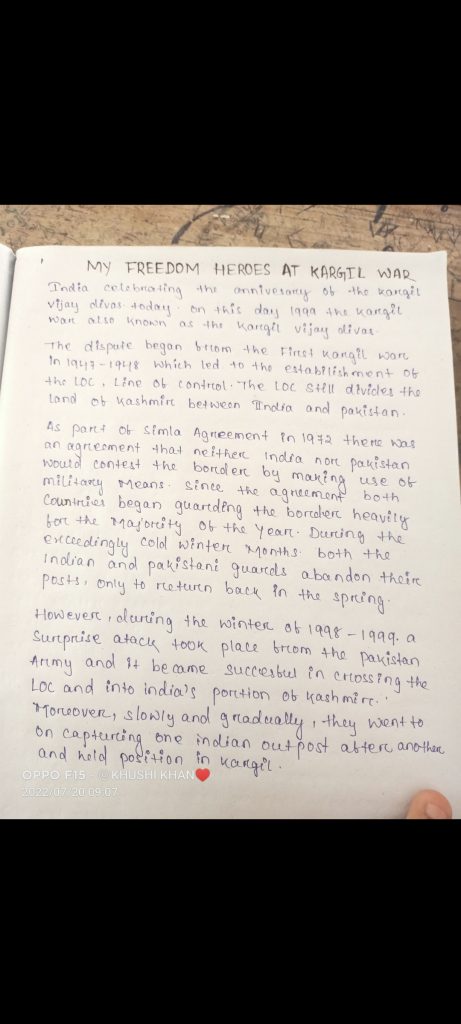 MY FREEDOM HEROES AT KARGIL WAR
India celebrating the anniversary of the kargil
vijay divas today. on this day 1999 the kargil
war also known as the kargil vijay divas.
The dispute began from the First kargil war
in 1947-1948 which led to the establilishment of
the LOC, Line of control. The LOC still divides the
land of kashmir between India and pakistan.
As part of Simla Agreement in 1972 there was
an agreement that neither India nor pakistan
would contest the border by making use of
military means. since the agreement both
Countries began guarding the border heavily
for the Majority of the Year. During the
exceedingly cold winter Months both the
Indian and pakistani guards abandon their
posts, only to return back in the spring.
However, during the winter of 1998 - 1999. a
Surprise atack took place from the pakistan
Army and it became succesful in crossing the
LOC and into india's portion of kashmir.
Moreover, slowly and gradually, they went to
on capturing one indian outpost after another
and held position in kargil.
OPPO F15 · © KHUSHI KHAN❤️
2022/07/20 09:07